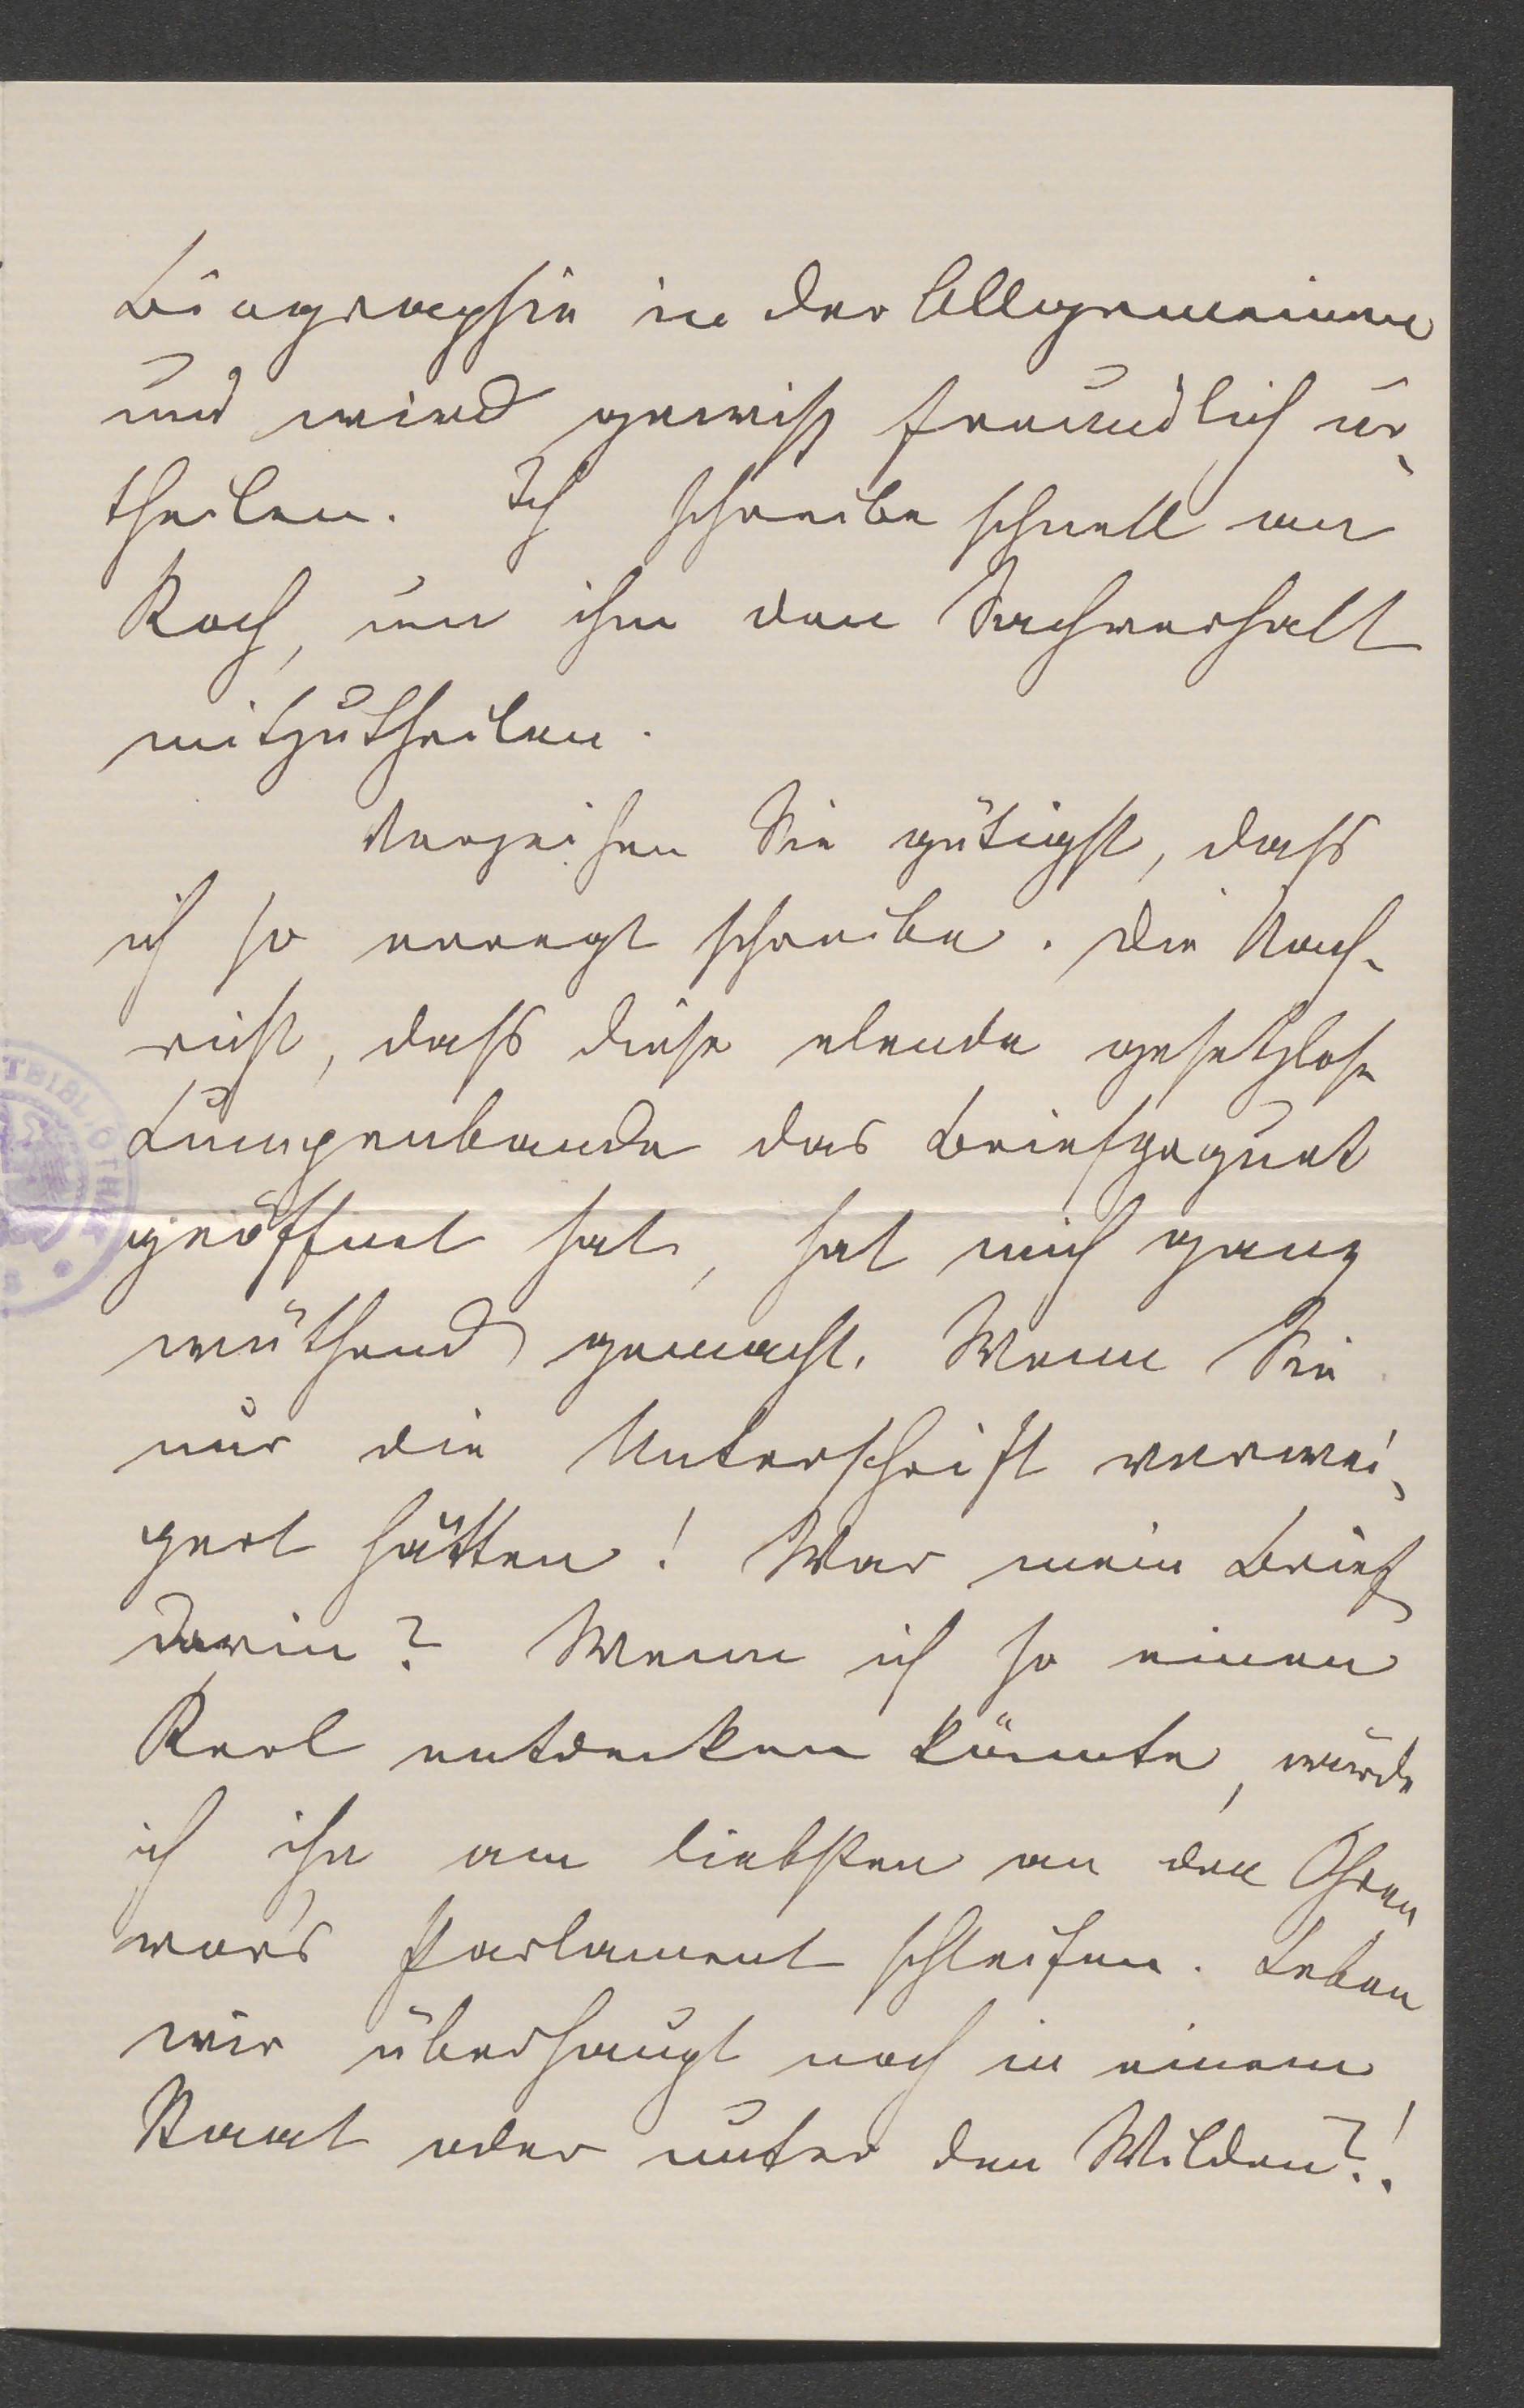 Biographie in der Allgemeinen
und wird gewiß freundlich ur-
theilen. Ich schreibe schnell an
Koch, um ihm den Sachverhalt
mitzutheilen.
Verzeihen Sie gütigst, dass
ich so erregt schreibe. Die Nach-
richt, dass diese elende gesetzlose
Lumpenbande das Briefpaquet
geöffnet hat, hat mich ganz
wüthend gemacht. Wenn Sie
nur die Unterschrift verwei-
gert hätten! War mein Brief
darin? Wenn ich so einen
Kerl entdecken könnte, würde
ich ihn am liebsten an den Ohren
vor's Parlament schleifen. Leben
wir überhaupt noch in einem
Staat oder unter den Wilden?!
TBIBLIOTHEK